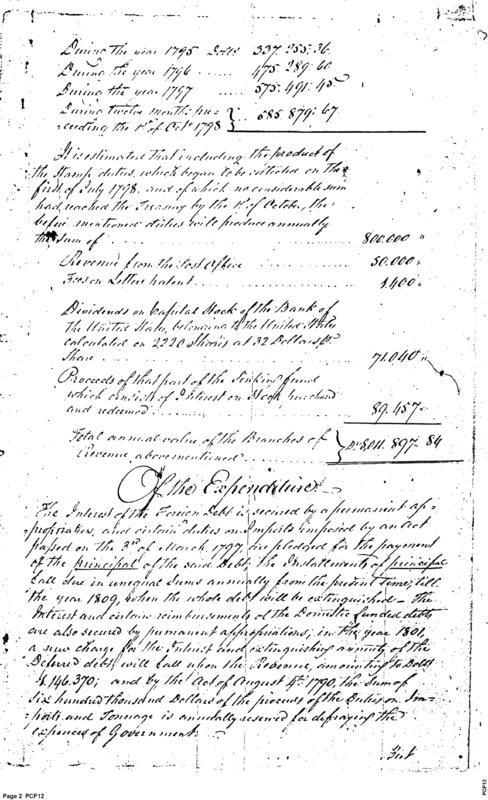 During the year 1795 Dolls 337.255:36.
During the year 1796 ...... 475.289:60
During the year 1797 ...... 575:491:45
During twelve months pre= } 585.879:67.
=ceeding the 1st of Octr 1798
It is estimated that including the product of
the Stamp duties, which began to be collected on the
first of July 1798, and of which no considerable sum
had reached the Treasury by the 1st of October, the
before mentioned duties will produce annually
the sum of ............ 800.000 "
Revenue from the Post Office ........ 50.000 "
Fees on Letters patent ........ 1.400 "
Dividends on Capital Stock of the Bank of
the United States, belonging to the United States
calculated on 2220 Shares at 32 Dollars pr
Share ........ 71.040 "
Proceeds of that part of the Sinking fund
which consists of Interest on Stock purchased
and redeemed ........ 89.457 "
Total annual value of the Branches of } 84
Revenue, abovementioned
Of the Expenditure.
The Interest of the Foreign Debt is secured by a permanent ap=
=propriation, and certain duties on Imports imposed by an Act
passed on the 3rd of March 1797, are pledged for the payment
of the principal of the said Debt; the Instalments of principal
fall due in unequal Sums annually from the present time, till
the year 1809, when the whole debt will be extinguished – the
Interest and certain reimbursements of the Domestic funded debts
are also secured by permanent appropriations; in the year 1801,
a new charge for the Interest and extinguishing annuity of the
Deferred debt, will fall upon the Revenue, amounting to Dolls
1.146.370; and by the Act of August 4th 1790, the Sum of
Six hundred thousand Dollars of the proceeds of the Duties on Im=
=ports and Tonnage is annually reserved for defraying the
expences of Government.
First
Page 2 PCF12
PCF12